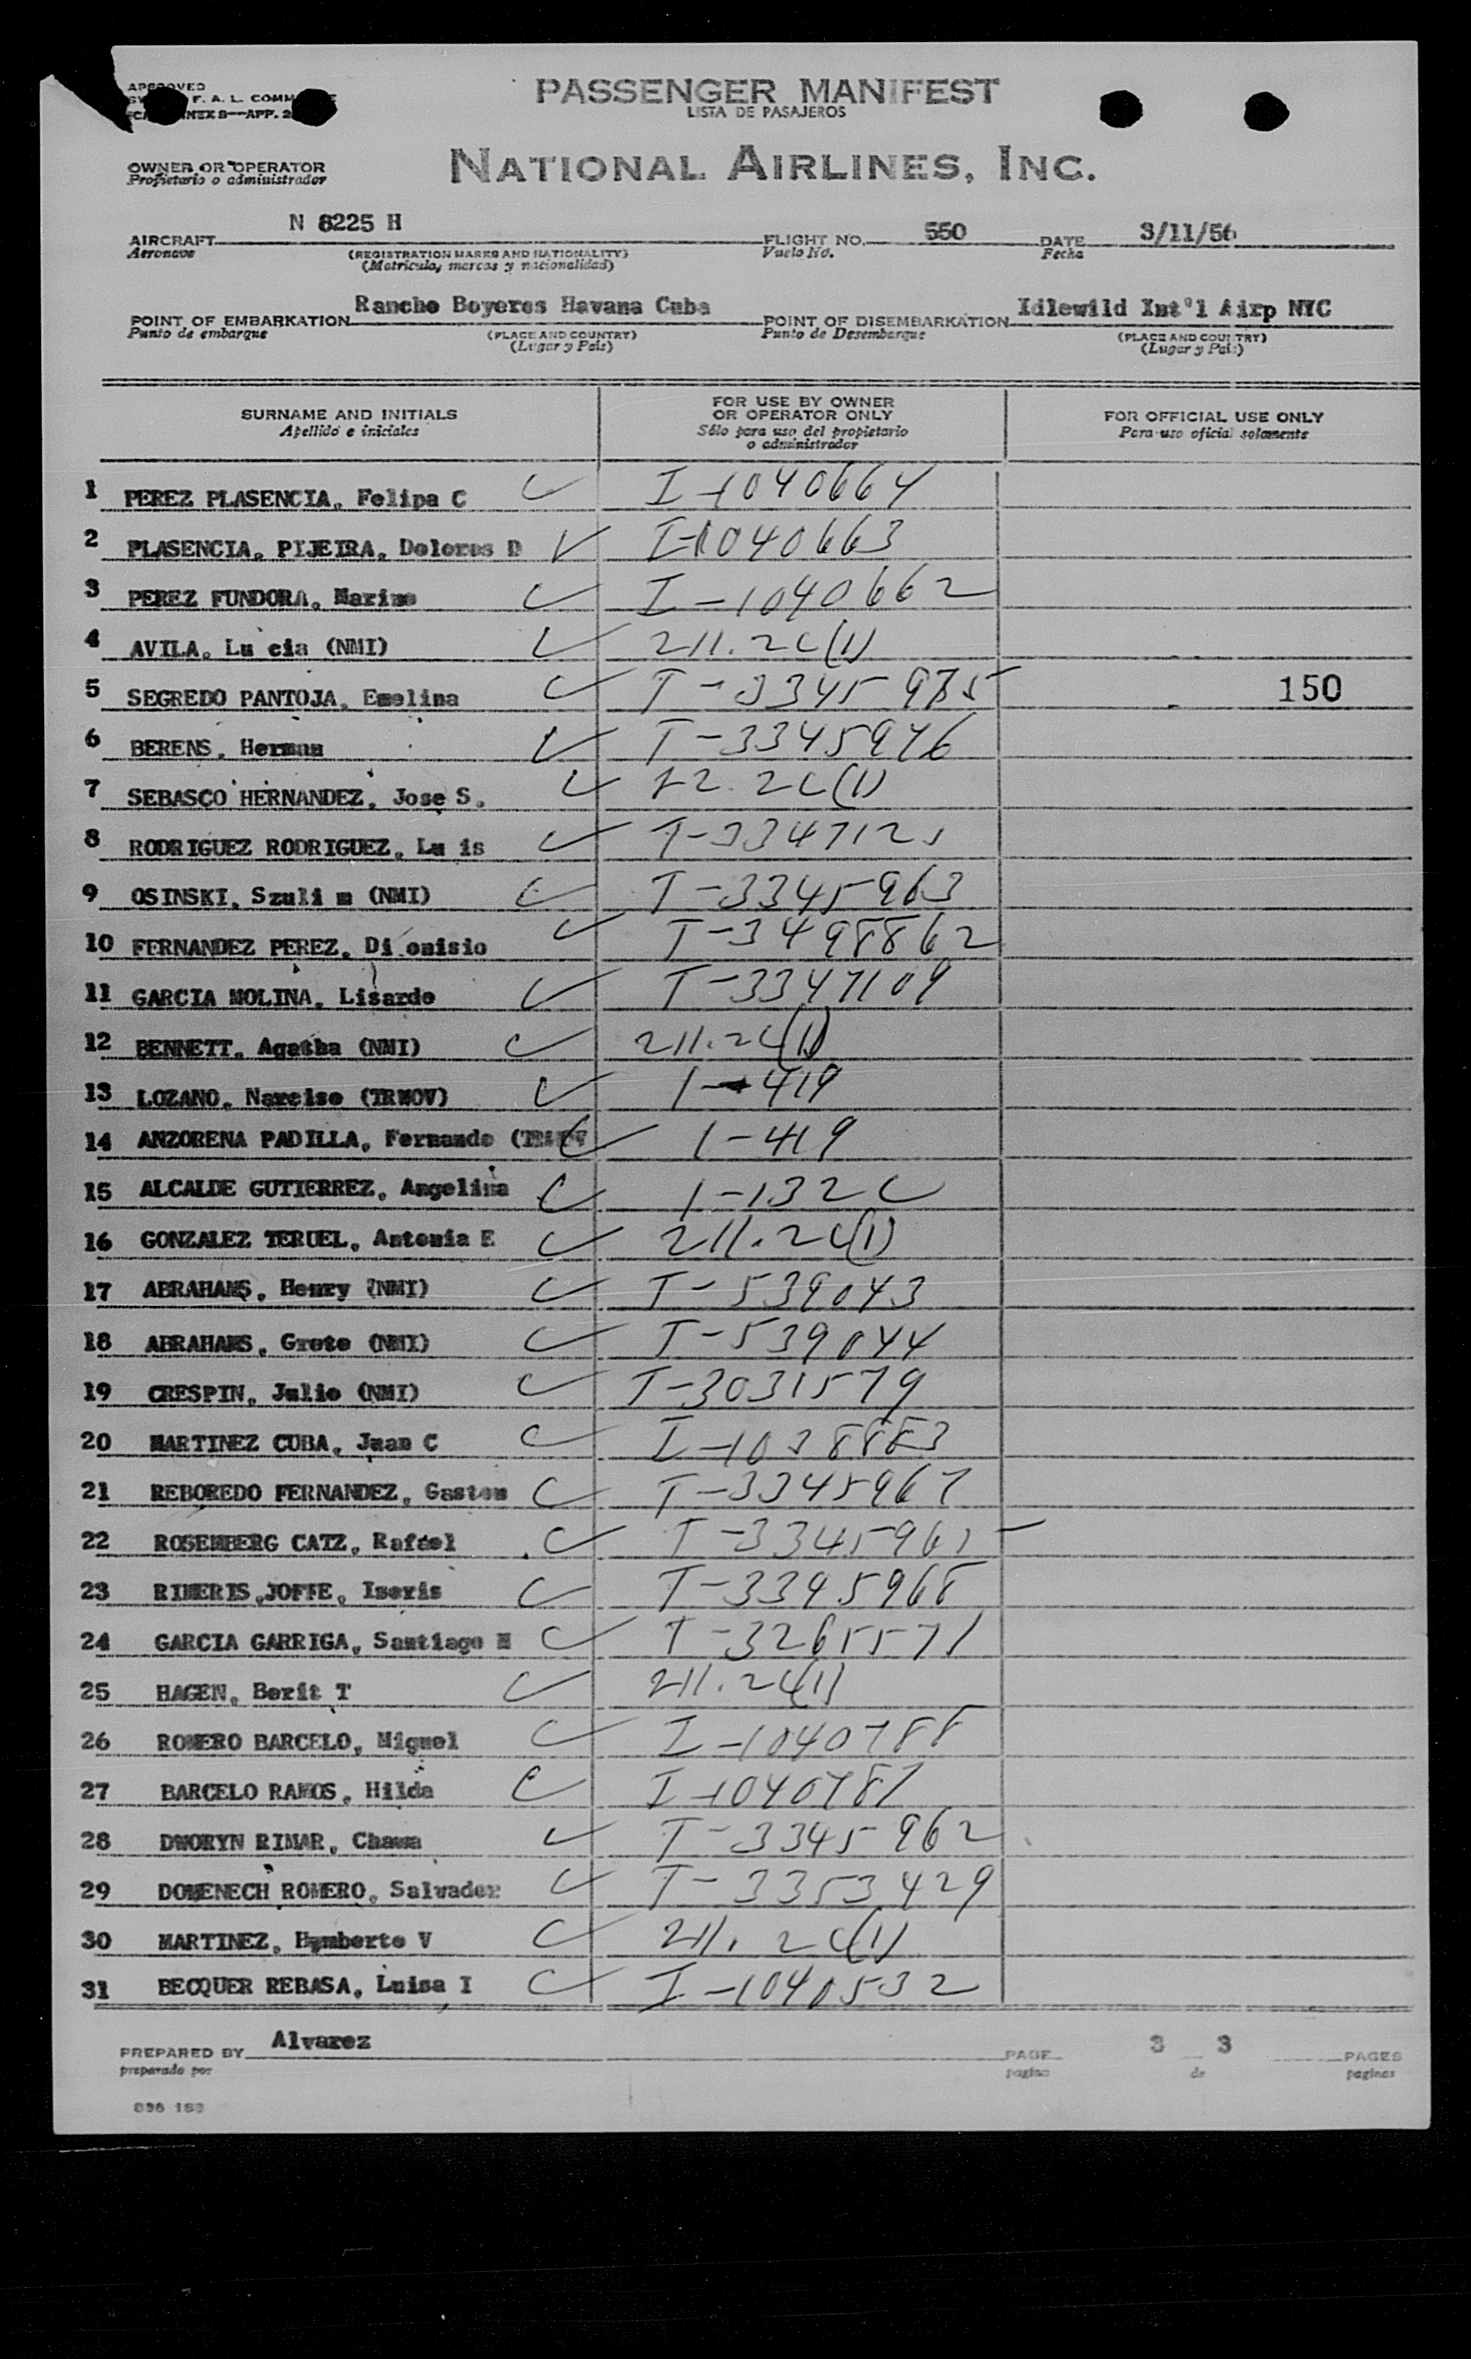 APPROVED
F. A. L. COMM
ANNEX 9—APP. 2
PASSENGER MANIFEST
LISTA DE PASAJEROS
OWNER OR OPERATOR
Propietario o administrador
NATIONAL AIRLINES, INC.
AIRCRAFT N 8225 H FLIGHT NO. 550 DATE 3/11/56
Aeronave (REGISTRATION MARKS AND NATIONALITY) Vuelo No. Fecha
(Matricula, marcas y nacionalidad)
POINT OF EMBARKATION Rancho Boyeros Havana Cuba POINT OF DISEMBARKATION Idlewild Int'l Airp NYC
Punto de embarque (PLACE AND COUNTRY) Punto de Desembarque (PLACE AND COUNTRY)
(Lugar y Pais) (Lugar y Pais)
SURNAME AND INITIALS FOR USE BY OWNER FOR OFFICIAL USE ONLY
Apellido e iniciales OR OPERATOR ONLY Para uso oficial solamente
Sólo para uso del propietario
o administrador
1 PEREZ PLASENCIA, Felipa C I-1040664
2 PLASENCIA, PIJEIRA, Dolores D I-1040663
3 PEREZ FUNDORA, Marino I-1040662
4 AVILA, Lu cia (NMI) 211.2C(1)
5 SEGREDO PANTOJA, Emelina T-3345975 150
6 BERENS, Herman T-3345976
7 SEBASCO HERNANDEZ, Jose S. 22.2C(1)
8 RODRIGUEZ RODRIGUEZ, Lu is T-3347121
9 OSINSKI, Szuli m (NMI) T-3345963
10 FERNANDEZ PEREZ, Di onisio T-3498862
11 GARCIA MOLINA, Lisardo T-3347109
12 BENNETT, Agatha (NMI) 211.2C(1)
13 LOZANO, Narciso (TRWOV) 1-419
14 ANZORENA PADILLA, Fernando 1-419
15 ALCALDE GUTIERREZ, Angelina 1-132C
16 GONZALEZ TERUEL, Antonia E 211.2C(1)
17 ABRAHAMS, Henry (NMI) T-539043
18 ABRAHAMS, Grete (NMI) T-539044
19 CRESPIN, Julio (NMI) T-3031579
20 MARTINEZ CUBA, Juan C I-1038883
21 REBOREDO FERNANDEZ, Gaston T-3345967
22 ROSEMBERG CATZ, Rafael T-3345965
23 RIMERIS,JOFFE, Iseris T-3345968
24 GARCIA GARRIGA, Santiago M T-3265571
25 HAGEN, Berit T 211.2C(1)
26 ROMERO BARCELO, Miguel I-1040788
27 BARCELO RAMOS, Hilda I-1040787
28 DWORYN RIMAR, Chawa T-3345962
29 DOMENECH ROMERO, Salvador T-3353429
30 MARTINEZ, Humberto V 211.2C(1)
31 BECQUER REBASA, Luisa I I-1040532
PREPARED BY Alvarez PAGE 3 3 PAGES
preparado por pagina de paginas